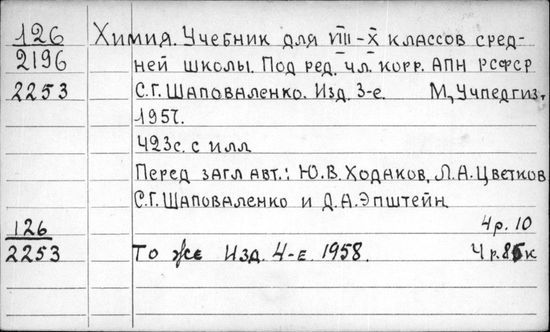 126 Химия. Учебник для VIII-X классов сред-
2196 ней школы. Под ред. чл. корр. АПН РСФСР
2253 С.Г. Шаповаленко. Изд. 3-е. М, Учпедгиз,
1957.
423с. с илл.
Перед загл авт.: Ю.В. Ходаков, Л.А. Цветков
С.Г. Шаповаленко и Д.А. Эпштейн.
126 4р. 10
2253 То же Изд. 4-е. 1958. 4р. к